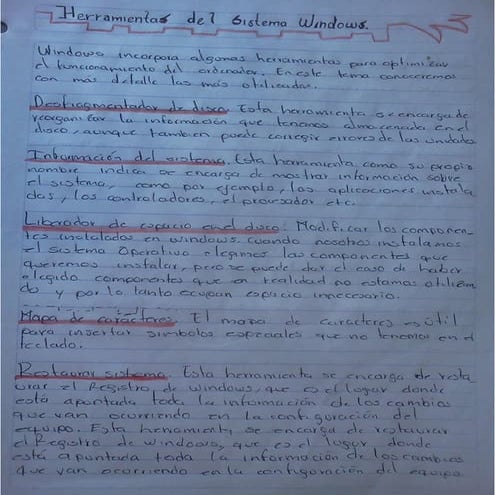 Herramientas del Sistema Windows.
Windows incorpora algunas herramientas para optimizar
el funcionamiento del ordenador. En este tema conoceremos
con más detalle las más utilizadas.
Desfragmentador de disco. Esta herramienta se encarga de
reorganizar la información que tenemos almacenada en el
disco, aunque tambien puede corregir errores de las unidades
Información del sistema. Esta herramienta como su propio
nombre indica se encarga de mostrar información sobre
el sistema, como por ejemplo, las aplicaciones instala
das, los controladores, el procesador etc.
Liberador de espacio en el disco: Modificar los componen-
tes instalados en windows. cuando nosotros instalamos
el Sistema Operativo elegimos los componentes que
queremos instalar, pero se puede dar el caso de haber
elegido componentes que en realidad no estamos utilizan
do y por lo tanto ocupan espacio innecesario.
Mapa de caracteres. El mapa de caracteres es útil
para insertar simbolos especiales que no tenemos en el
teclado.
Restaurar sistema. Esta herramienta se encarga de resta
urar el Registro de windows, que es el lugar donde
está apuntada toda la información de los cambios
que van ocurriendo en la configuración del
equipo. Esta herramienta se encarga de restaurar
el Registro de windows, que es el lugar donde
está apuntada toda la información de los cambios
que van ocurriendo en la configuración del equipo